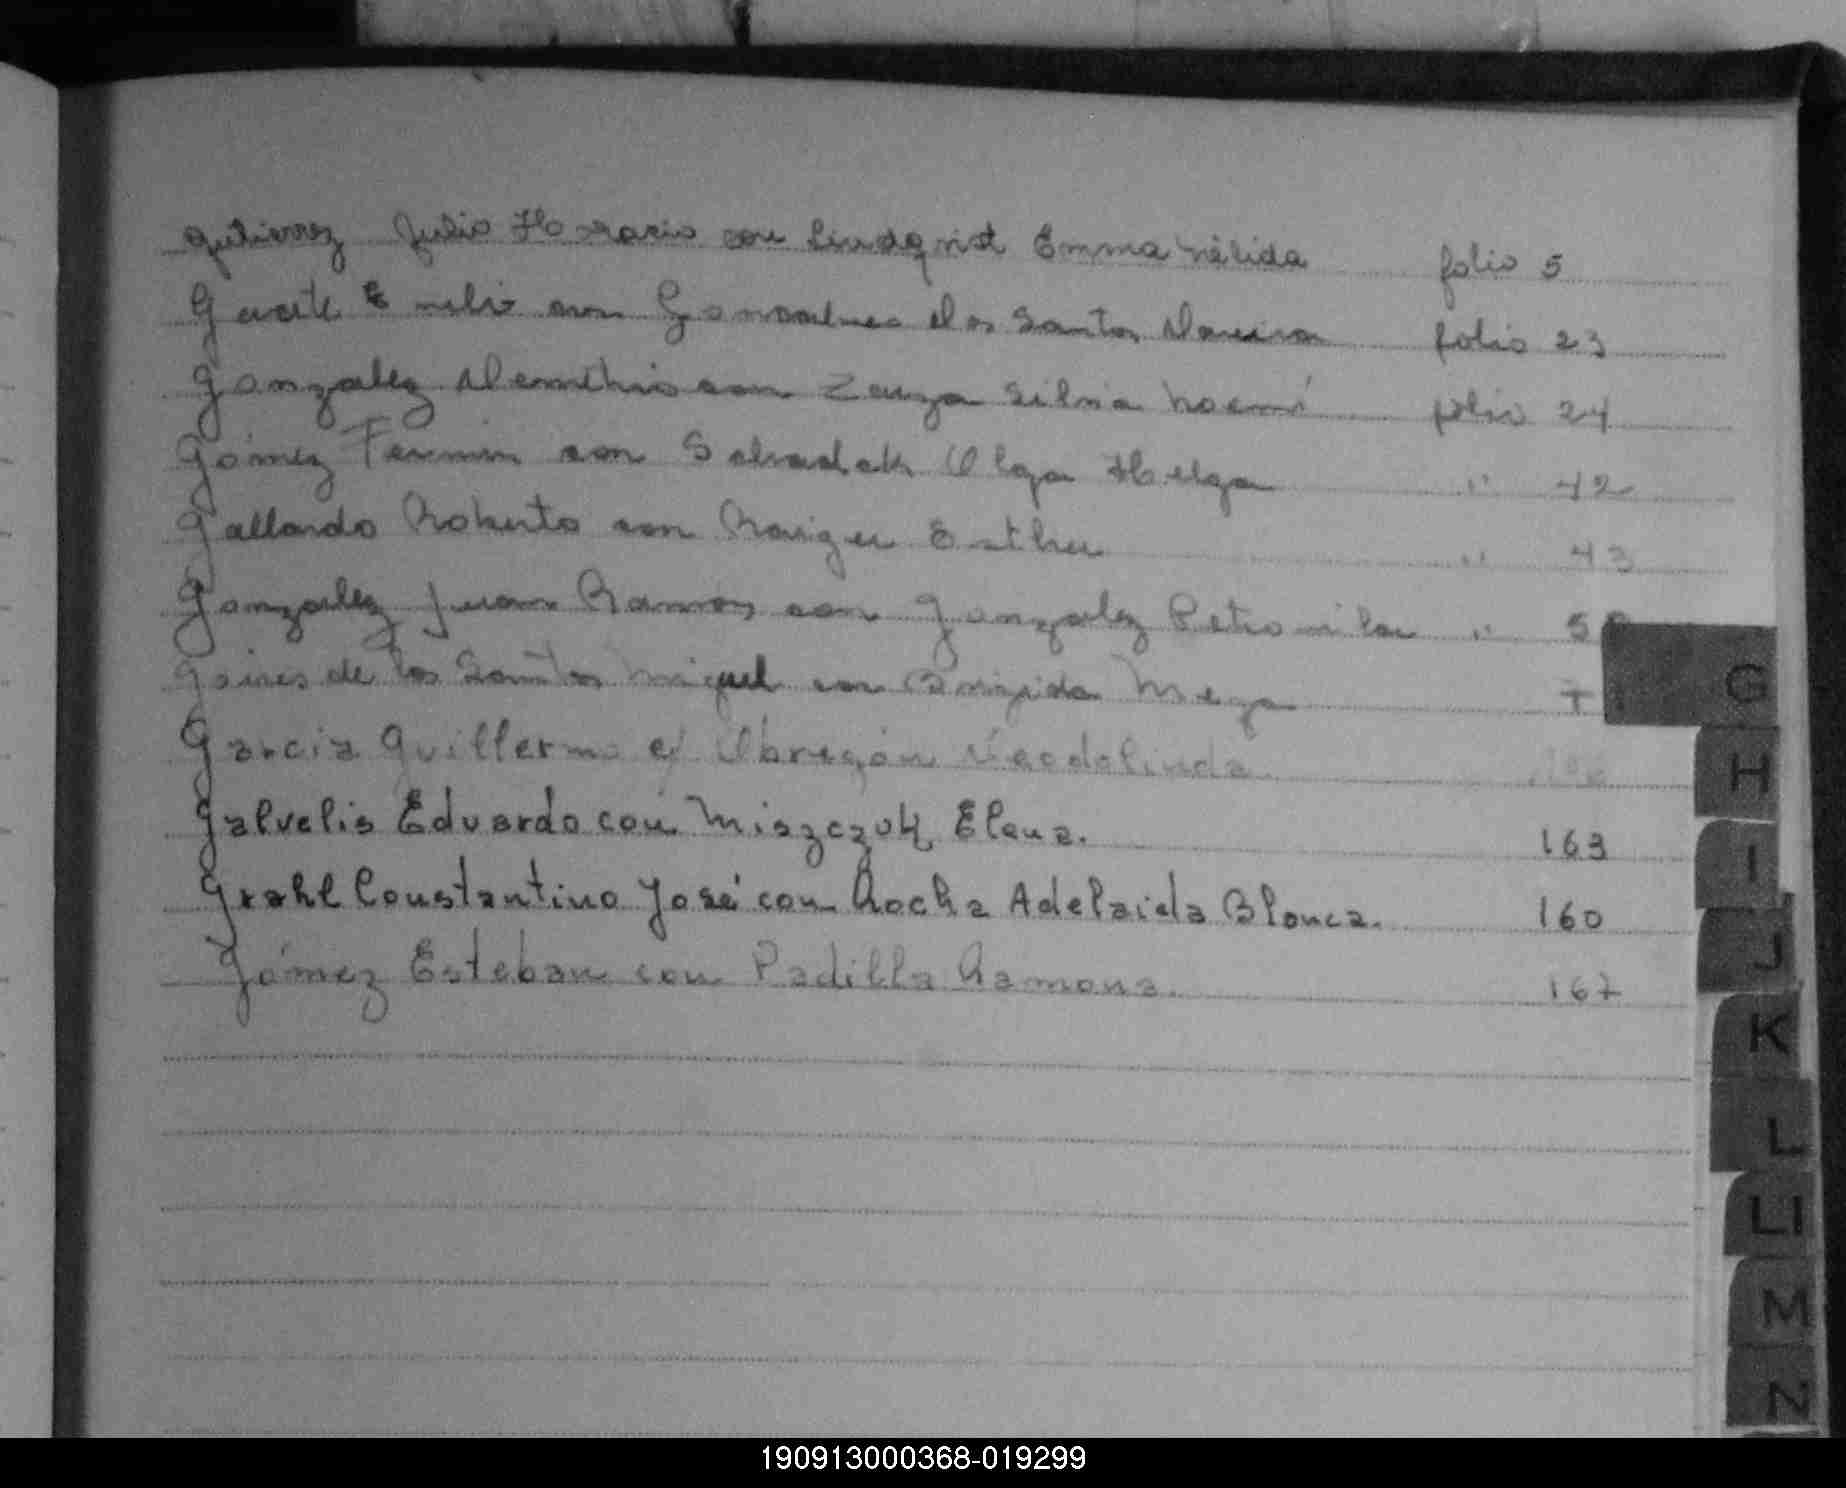 Gutierrez Julio Horacio con Lindqvist Emma Nélida folio 5
Garate Emilio con Goncalves dos Santos folio 23
Gonzalez Demetrio con Zauza Silvia Noemí folio 24
Gómez Fermin con Olga Helga " 42
Gallardo Roberto con Esther " 43
Gonzalez Juan Ramon con Gonzalez Petronila " 5
de los Santos Miguel con Brigida Meza 7
Garcia Guillermo c/ Obregón Teodolinda
Galvelis Eduardo con Miszczuk Elena. 163
Grahl Constantino José con Rocha Adelaida Blanca. 160
Gómez Esteban con Padilla Ramona. 167
G
H
I
J
K
L
Ll
M
N
190913000368-019299